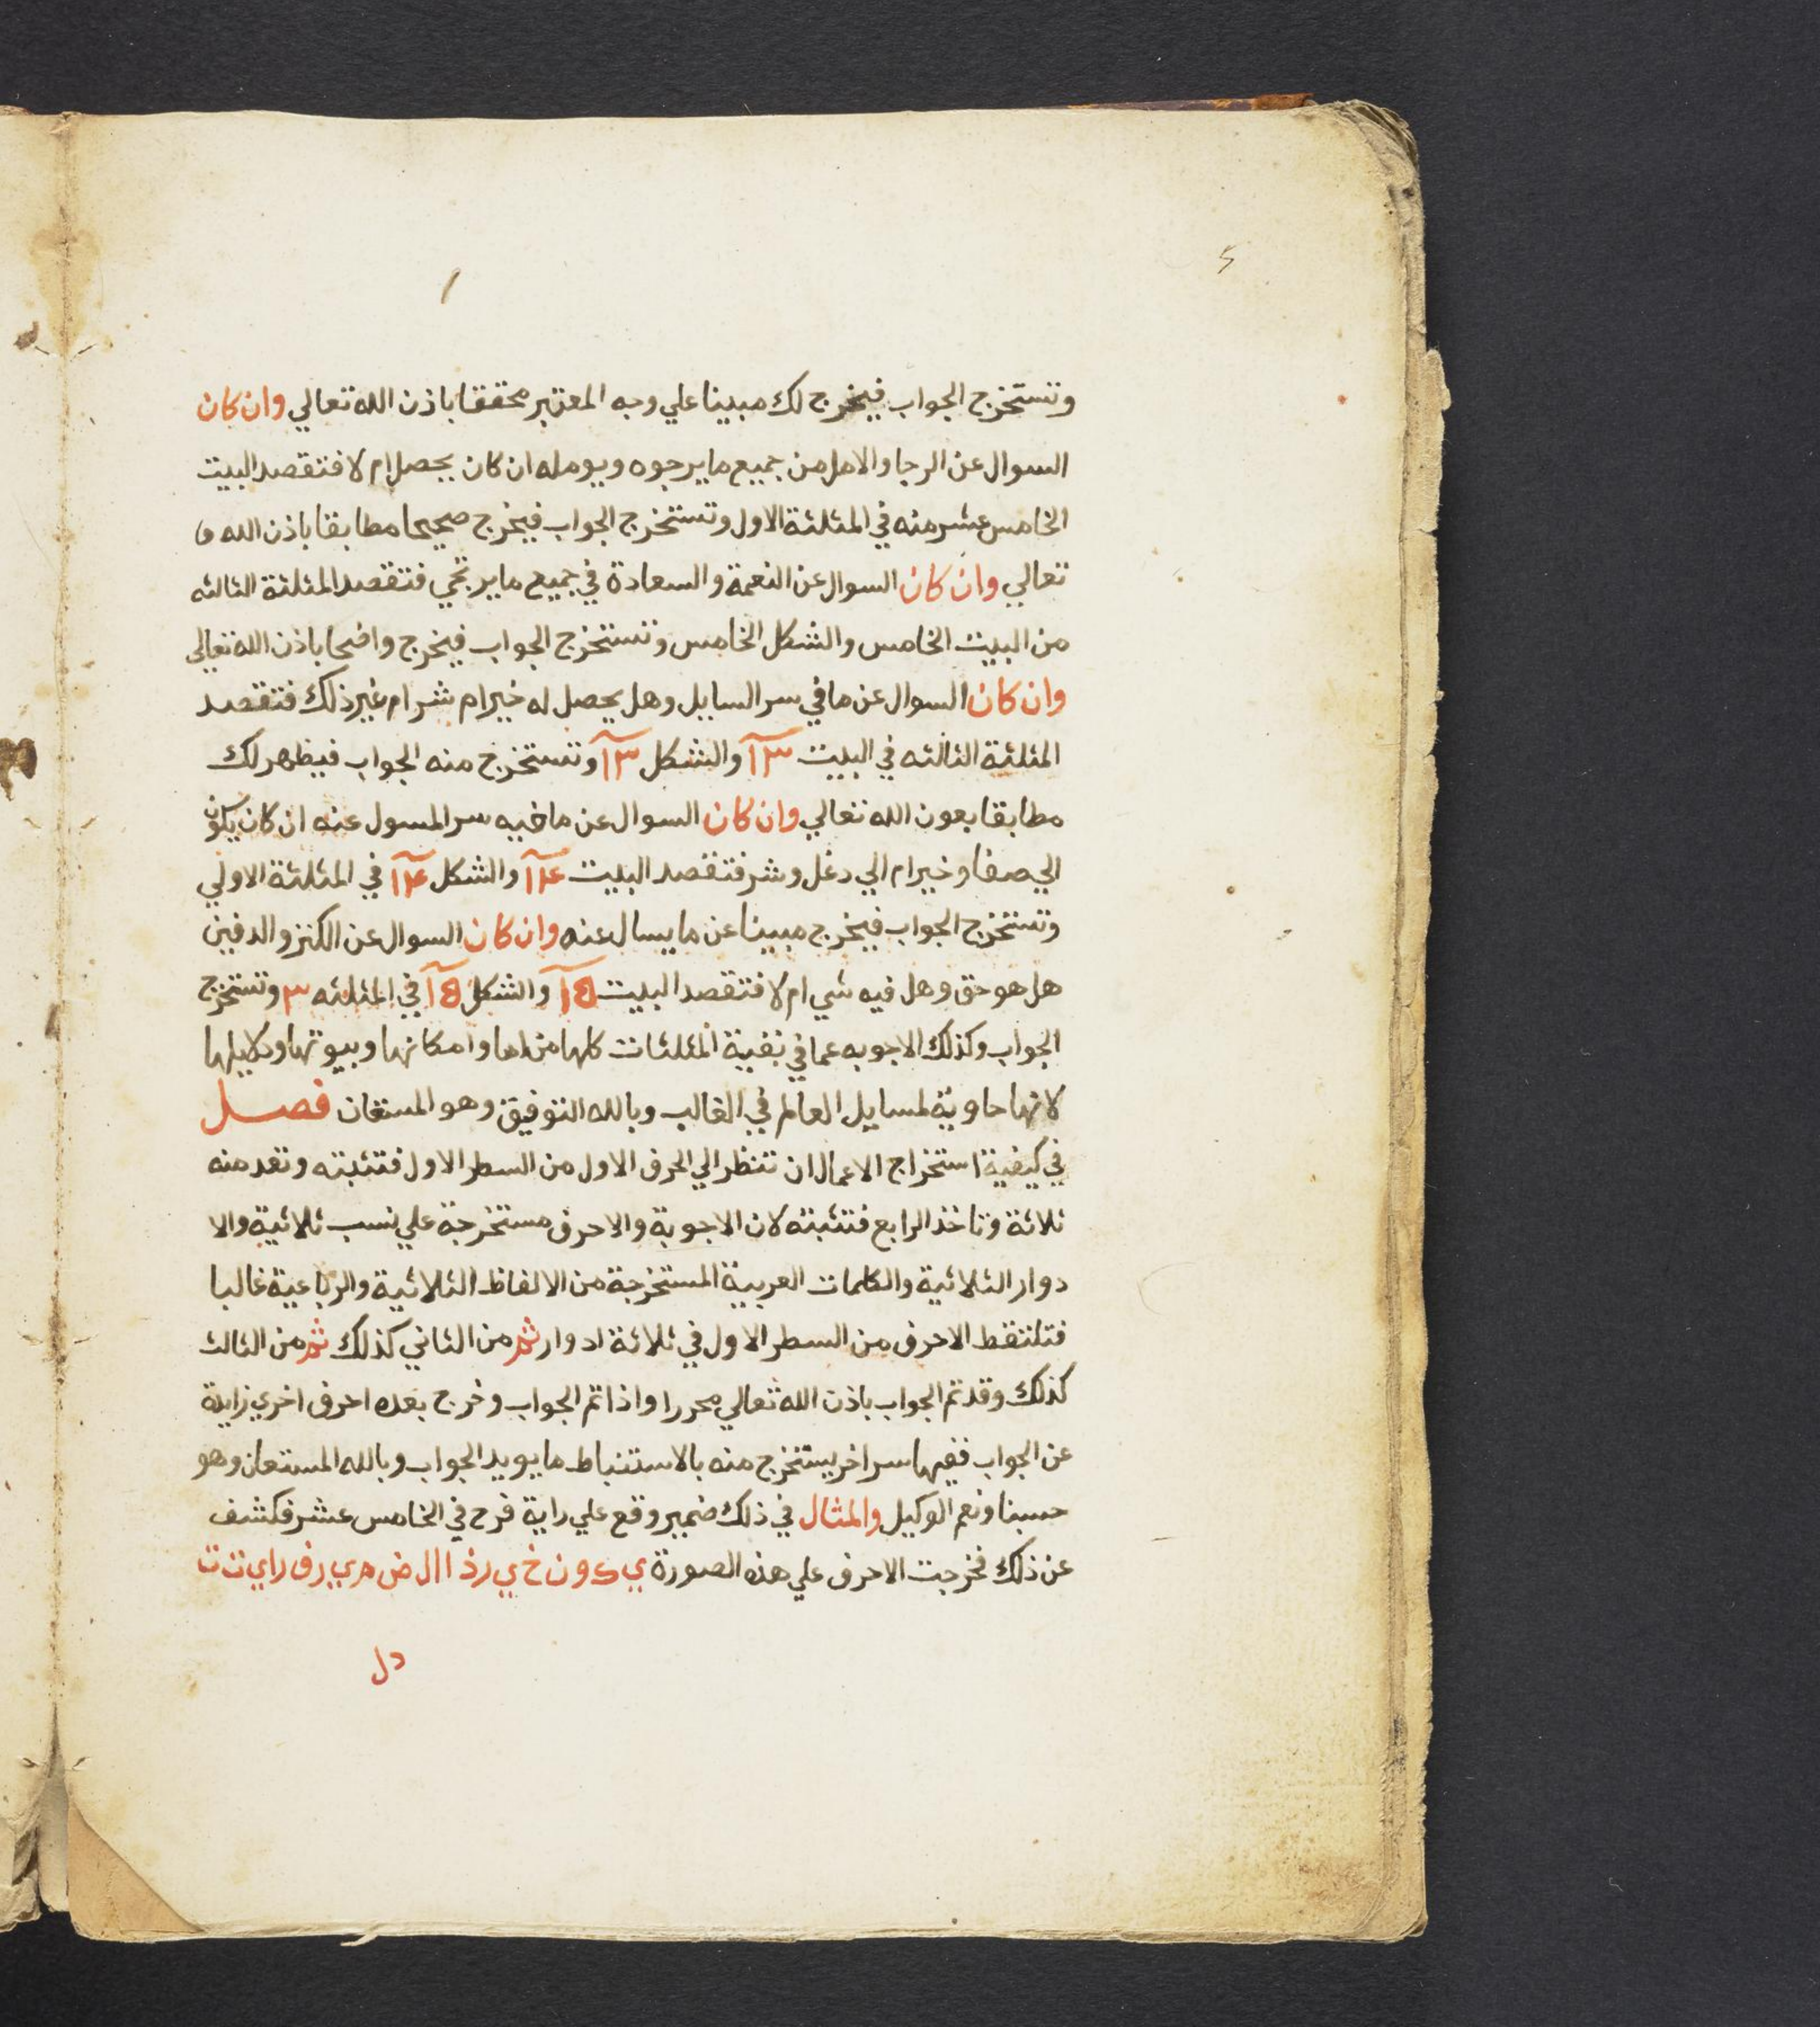 وتستخرج الجواب فيخرج لك مبينا علي وجه المعتبر محققا باذن الله تعالي وان كان
السوال عن الرجا والامل من جميع ما يرجوه ويومله ان كان يحصل ام لا فتقصد البيت
الخامس عشر منه في المثلثة الاول وتستخرج الجواب فيخرج صحيحا مطابقا باذن الله
تعالي وان كان السوال عن النعمة والسعادة في جميع ما يرتجي فتقصد المثلثة الثالثه
من البيت الخامس والشكل الخامس وتستخرج الجواب فيخرج واضحا باذن الله تعالي
وان كان السوال عن ما في سر السايل وهل يحصل له خير ام شر ام غير ذلك فتقصد
المثلثة الثالثه في البيت ١٣ والشكل ١٣ وتستخرج منه الجواب فيظهر لك
مطابقا بعون الله تعالي وان كان السوال عن ما فيه سر المسول عنه ان كان يكون
الي صفا وخير ام الي دغل وشر فتقصد البيت ١٤ والشكل ١٤ في المثلثة الاولي
وتستخرج الجواب فيخرج مبينا عن ما يسال عنه وان كان السوال عن الكنز والدفين
هل هو حق وهل فيه شي ام لا فتقصد البيت ١٥ والشكل ١٥ في المثلثه ٣ وتستخرج
الجواب وكذلك الاجوبه عما في بقية المثلثات كلها من اما وامكانها وبيوتها ودلايلها
لانها حاوية لمسايل العالم في الغالب وبالله التوفيق وهو المستعان فصل
في كيفية استخراج الاعمال ان تنظر الي الحرف الاول من السطر الاول فتثبته وتعد منه
ثلاثة وتاخذ الرابع فتثبته لان الاجوبة والاحرف مستخرجة علي نسب ثلاثية والا
دوار الثلاثية والكلمات العربية المستخرجة من الالفاظ الثلاثية والرباعية غالبا
فتلتقط الاحرف من السطر الاول في ثلاثة ادوار ثم من الثاني كذلك ثم من الثالث
كذلك وقد تم الجواب باذن الله تعالي محررا واذا تم الجواب وخرج بعده احرف اخري زايدة
عن الجواب ففيها سر اخر يستخرج منه بالاستنباط ما يويد الجواب وبالله المستعان وهو
حسبنا ونعم الوكيل والمثال في ذلك ضمير وقع علي راية فرح في الخامس عشر فكشف
عن ذلك فخرجت الاحرف علي هذه الصورة ي ك و ن خ ي ر ذ ا ا ل ض م ي ر ف ر ا ي ت ت
د ل